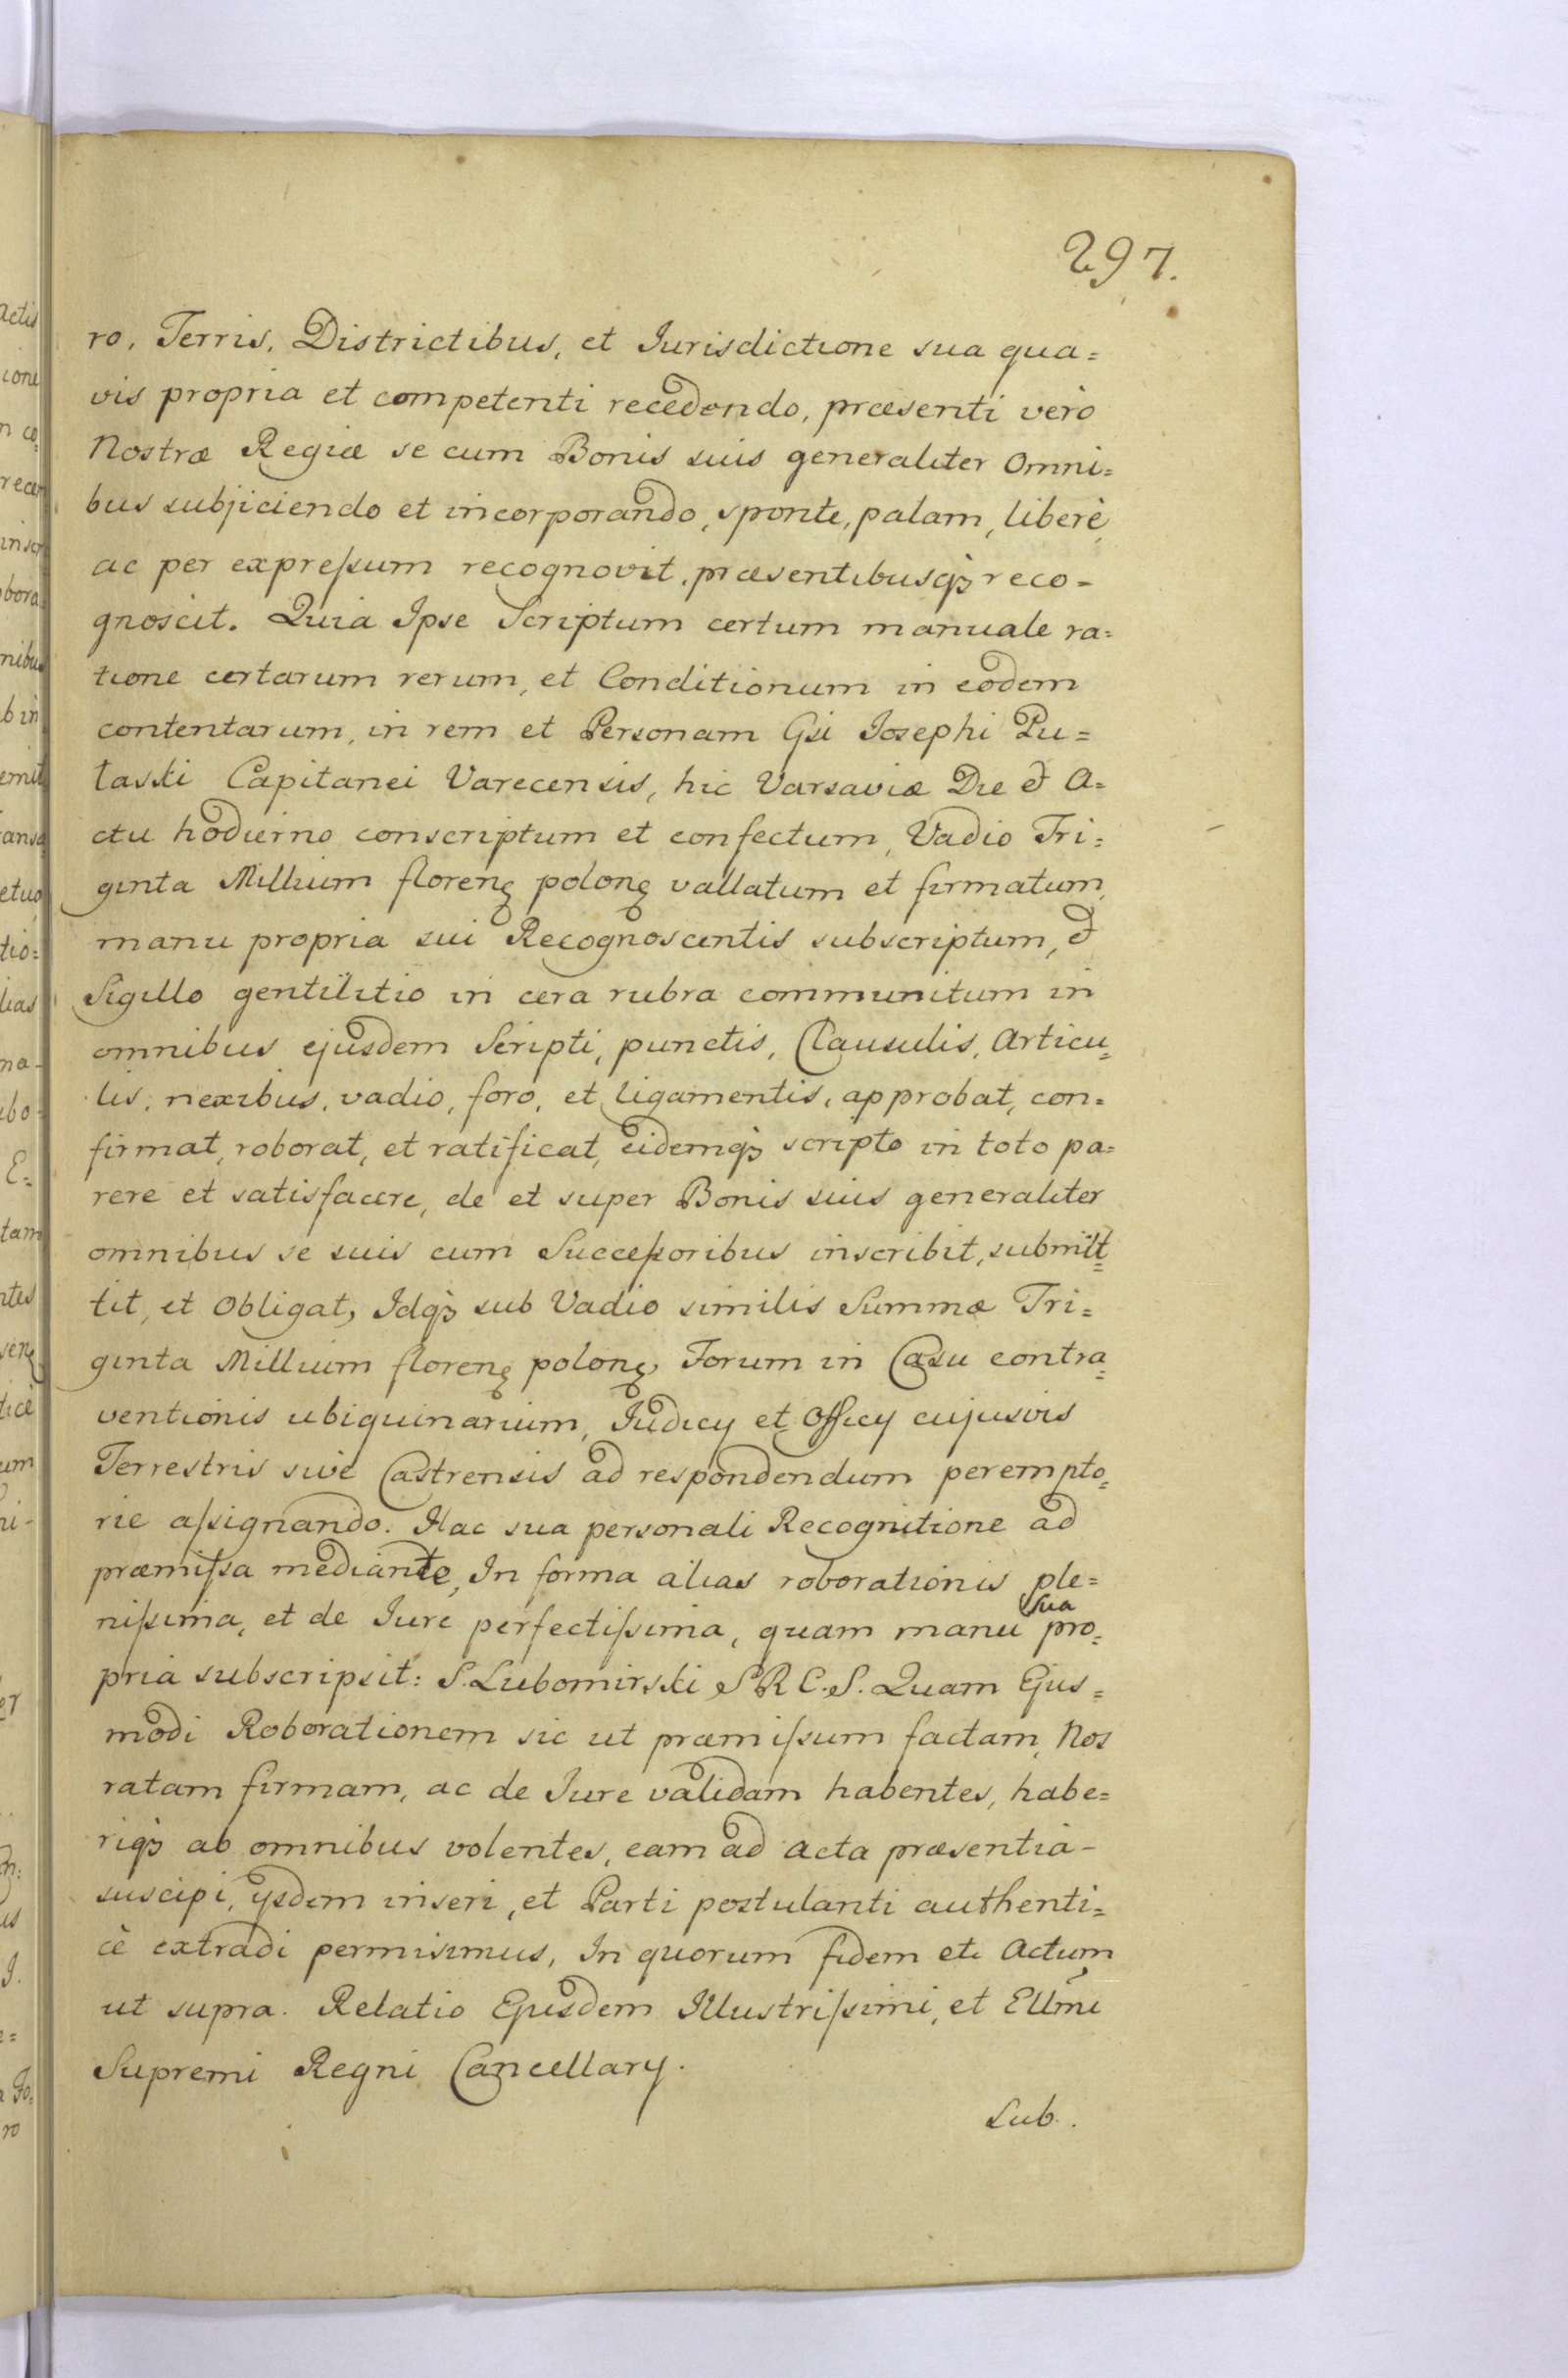 297.
ro, Terris, Districtibus, et Jurisdictione sua qua=
vis propria et competenti recedendo, præsenti vero
Nostræ Regiæ se cum Bonis suis generaliter Omni=
bus subjiciendo et incorporando, sponte, palam, liberè,
ac per expreſsum recognovit, præsentibusqꝫ reco=
gnoscit. Quia Ipse Scriptum certum manuale ra=
tione certarum rerum, et Conditionum in eodem
contentarum, in rem et Personam Gsi Josephi Pu=
łaski Capitanei Varecensis, hic Varsaviæ Die & A=
ctu hodierno conscriptum et confectum, Vadio Tri=
ginta Millium florenꝫ polonꝫ vallatum et firmatum,
manu propria sui Recognoscentis subscriptum, &
Sigillo gentilitio in cera rubra communitum in
omnibus ejusdem Scripti, punctis, Clausulis, Articu=
lis, nexibus, vadio, foro, et ligamentis, approbat, con=
firmat, roborat, et ratificat, eidemqꝫ scripto in toto pa=
rere et satisfacere, de et super Bonis suis generaliter
omnibus se suis cum Succeſsoribus inscribit, submit=
tit, et Obligat, Idqꝫ sub Vadio similis Summæ Tri=
ginta Millium florenꝫ polonꝫ, Forum in Casu contra=
ventionis ubiquinarium, Judicy et Officy cujusvis
Terrestris sive Castrensis ad respondendum perempto=
rie aſsignando. Hac sua personali Recognitione ad
præmiſsa mediante, In forma alias roborationis ple=
niſsima, et de Jure perfectiſsima, quam manu sua pro=
pria subscripsit: S. Lubomirski S R C. S. Quam Ejus=
modi Roborationem sic ut præmiſsum factam, Nos
ratam firmam, ac de Jure validam habentes, habe=
riqꝫ ab omnibus volentes, eam ad Acta præsentia-
suscipi, ysdem inseri, et Parti postulanti authenti=
cè extradi permisimus, In quorum fidem etc Actum
ut supra. Relatio Ejusdem Illustriſsimi, et Ellmi
Supremi Regni Cancellary.
Sub.